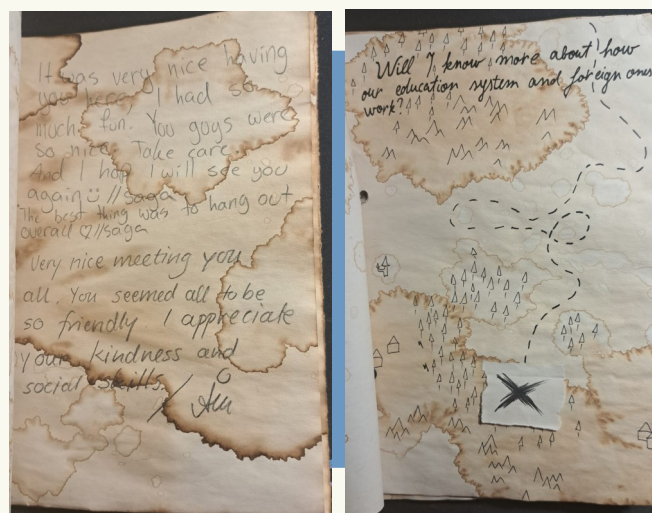 It was very nice having
you here, I had so
much fun. You guys were
so nice. Take care
And I hop I will see you
again ü //saga
The best thing was to hang out
overall ♡//saga
Very nice meeting you
all. You seemed all to be
so friendly I appreciate
your kindness and
social skills.
Will I know more about how
our education system and foreign ones
work?